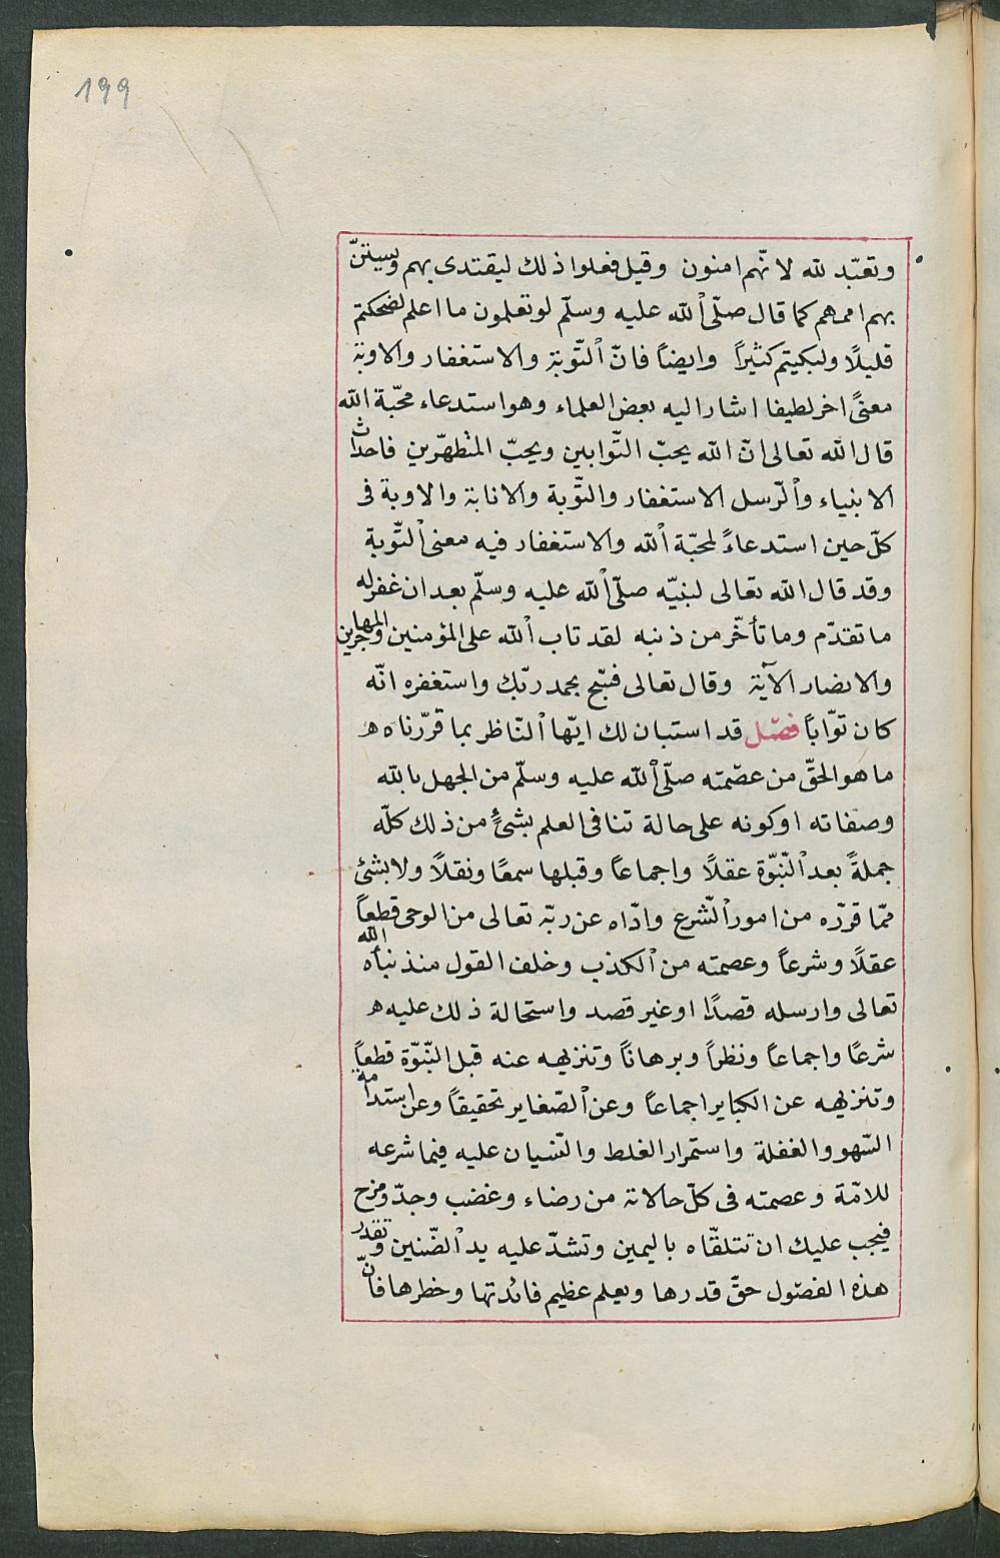 199
وتعبّد لله لانّهم امنون وقيل فعلوا ذلك ليقتدى بهم ويستنّ
بهم اممهم كما قال صلّى الله عليه وسلّم لو تعلمون ما اعلم لضحكتم
قليلًا ولبكيتم كثيرًا وايضاً فانّ التّوبة والاستغفار والاوبة
معنىً اخر لطيفا اشار اليه بعض العلماء وهو استدعاء محبّة الله
قال الله تعالى انّ الله يحبّ التّوابين ويحبّ المتطهّرين فاحداث
الانبياء والرّسل الاستغفار والتّوبة والانابة والاوبة فى
كلّ حين استدعاءً لمحبّة الله والاستغفار فيه معنى التّوبة
وقد قال الله تعالى لنبيّه صلّى الله عليه وسلّم بعد ان غفر له
ما تقدّم وما تأخّر من ذنبه لقد تاب الله على المؤمنين والمهاجرين
والانصار الآية وقال تعالى فسبّح بحمد ربّك واستغفره انّه
كان توّاباً فصل قد استبان لك ايّها النّاظر بما قرّرناه ه
ما هو الحقّ من عصمته صلّى الله عليه وسلّم من الجهل بالله
وصفاته او كونه على حالة تنافى العلم بشئٍ من ذلك كلّه
جملةً بعد النّبوّة عقلًا واجماعاً وقبلها سمعًا ونقلًا ولا بشئ
ممّا قرّره من امور الشّرع وادّاه عن ربّه تعالى من الوحى قطعاً
عقلًا وشرعاً وعصمته من الكذب وخلف القول منذ نبأه الله
تعالى وارسله قصدًا او غير قصد واستحالة ذلك عليه ه
شرعًا واجماعاً ونظراً وبرهاناً وتنزيهه عنه قبل النّبّوة قطعاً
وتنزيهه عن الكباير اجماعاً وعن الصّغاير تحقيقاً وعن استدامة
السّهو والغفلة واستمرار الغلط والنّسيان عليه فيما شرعه
للامّة وعصمته فى كلّ حالاته من رضاء وغضب وجدّ ومزح
فيجب عليك ان تتلقّاه باليمين وتشدّ عليه يد الضّنين وتقدر
هذه الفصول حقّ قدرها ويعلم عظيم فائدتها وخطرها فانّ